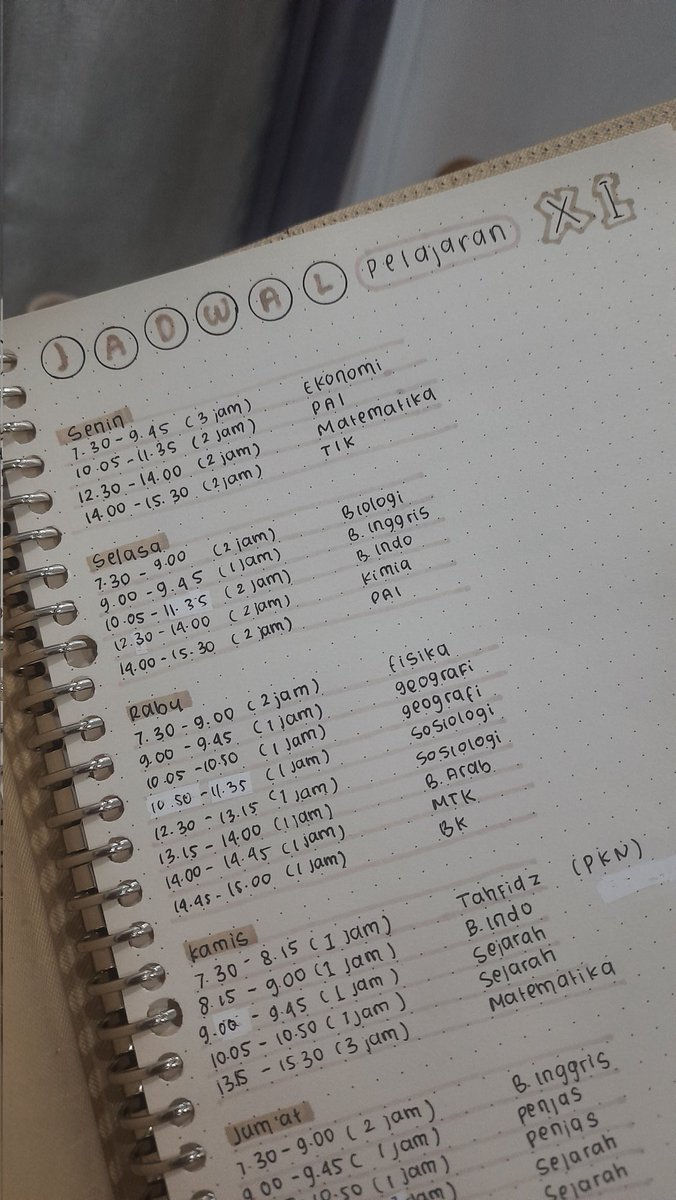 JADWAL pelajaran XI
Senin
7.30 - 9.45 (3 jam) Ekonomi
10.05 - 11.35 (2 jam) PAI
12.30 - 14.00 (2 jam) Matematika
14.00 - 15.30 (2 jam) TIK
Selasa
7.30 - 9.00 (2 jam) Biologi
9.00 - 9.45 (1 jam) B. Inggris
10.05 - 11.35 (2 jam) B. Indo
12.30 - 14.00 (2 jam) Kimia
14.00 - 15.30 (2 jam) PAI
Rabu
7.30 - 9.00 (2 jam) fisika
9.00 - 9.45 (1 jam) geografi
10.05 - 10.50 (1 jam) geografi
10.50 - 11.35 (1 jam) Sosiologi
12.30 - 13.15 (1 jam) Sosiologi
13.15 - 14.00 (1 jam) B. Arab
14.00 - 14.45 (1 jam) MTK
14.45 - 15.00 (1 jam) BK
Kamis
7.30 - 8.15 (1 jam) Tahfidz (PKN)
8.15 - 9.00 (1 jam) B. Indo
9.00 - 9.45 (1 jam) Sejarah
10.05 - 10.50 (1 jam) Sejarah
13.15 - 15.30 (3 jam) Matematika
Jum'at
7.30 - 9.00 (2 jam) B. Inggris
9.00 - 9.45 (1 jam) penjas
10.50 (1 jam) penjas
jam) Sejarah
Sejarah